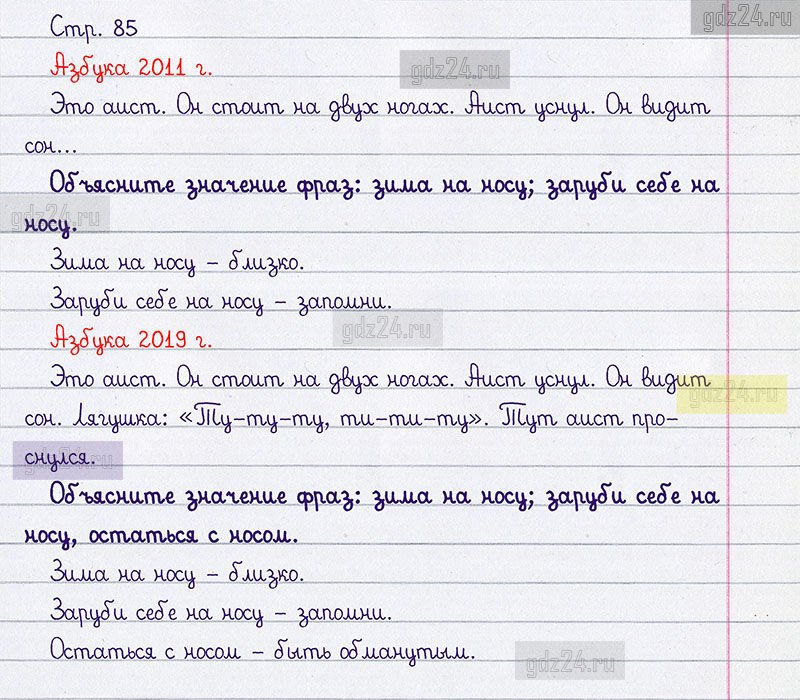 gdz24.ru
Стр. 85
Азбука 2011 г.
gdz24.ru
Это аист. Он стоит на двух ногах. Аист уснул. Он видит
сон...
Объясните значение фраз: зима на носу; заруби себе на
gdz24.ru
носу.
Зима на носу – близко.
Заруби себе на носу – запомни.
gdz24.ru
Азбука 2019 г.
Это аист. Он стоит на двух ногах. Аист уснул. Он видит
gdz24.ru
сон. Лягушка: «Ту-ту-ту, ти-ти-ту». Тут аист про-
снулся.
gdz24.ru
Объясните значение фраз: зима на носу; заруби себе на
носу, остаться с носом.
Зима на носу – близко.
Заруби себе на носу – запомни.
Остаться с носом – быть обманутым.
gdz24.ru